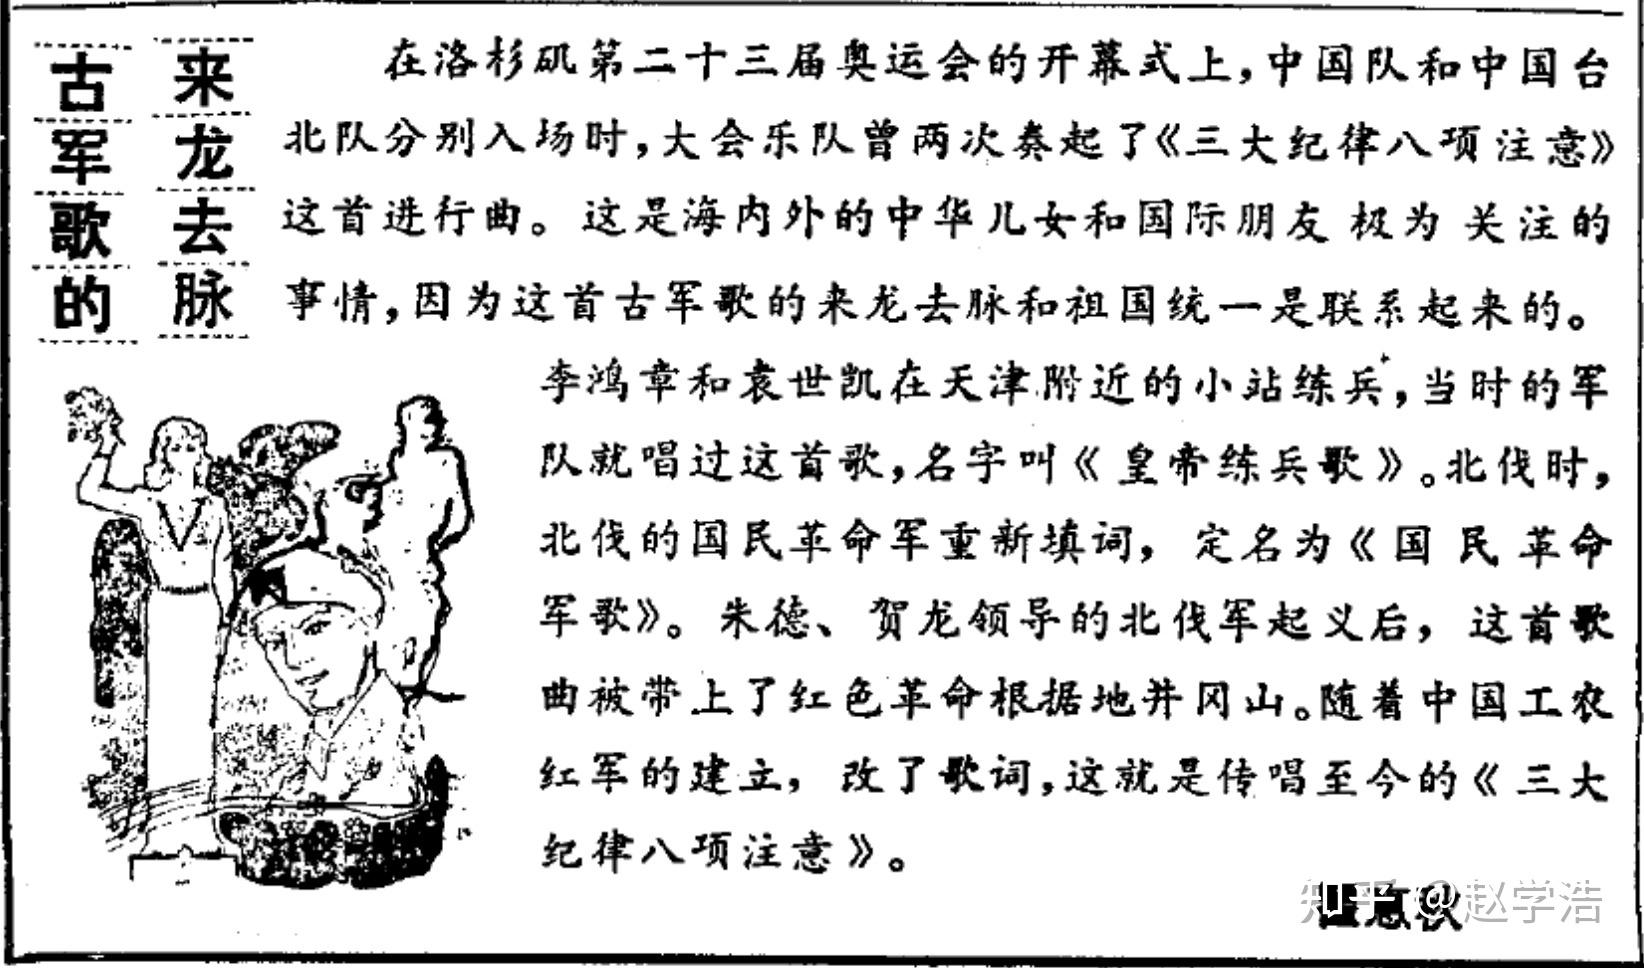 古军歌的
来龙去脉
在洛杉矶第二十三届奥运会的开幕式上，中国队和中国台
北队分别入场时，大会乐队曾两次奏起了《三大纪律八项注意》
这首进行曲。这是海内外的中华儿女和国际朋友极为关注的
事情，因为这首古军歌的来龙去脉和祖国统一是联系起来的。
李鸿章和袁世凯在天津附近的小站练兵，当时的军
队就唱过这首歌，名字叫《皇帝练兵歌》。北伐时，
北伐的国民革命军重新填词，定名为《国民革命
军歌》。朱德、贺龙领导的北伐军起义后，这首歌
曲被带上了红色革命根据地井冈山。随着中国工农
红军的建立，改了歌词，这就是传唱至今的《三大
纪律八项注意》。
知乎 @赵学浩